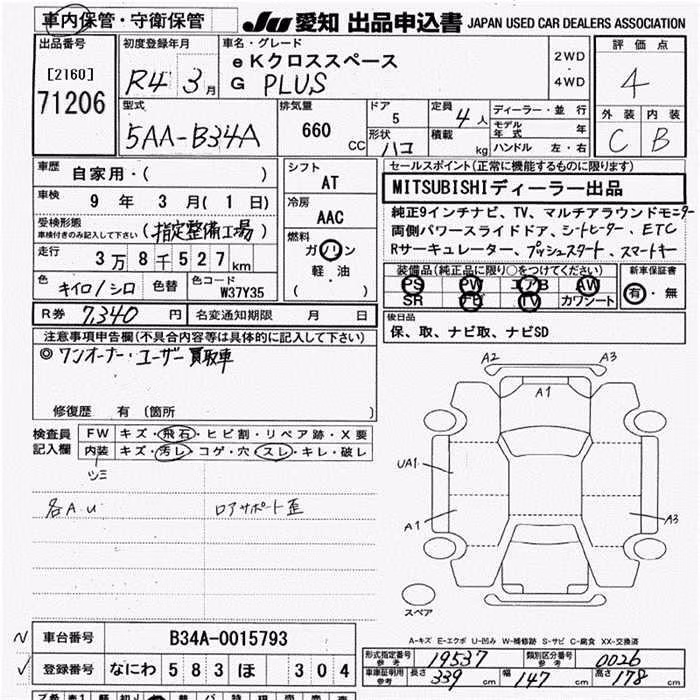 車内保管・守衛保管
JU 愛知 出品申込書 JAPAN USED CAR DEALERS ASSOCIATION
出品番号
[2160]
71206
初度登録年月
R4年 3月
車名・グレード
eKクロススペース
G PLUS
2WD
・
4WD
評価点
4
外装 内装
C B
型式
5AA-B34A
排気量
660 CC
ドア
5
形状
ハコ
定員
4人
積載
kg
ディーラー・並行
モデル年式 年
ハンドル 左・右
車歴
自家用・( )
車検
9年 3月( 1日)
受検形態
車検付きのみ記入して下さい
(指定整備工場)
走行
3万8千527km
色
キイロ/シロ
色替
色コード
W37Y35
シフト
AT
冷房
AAC
燃料
ガソリン
軽・油
( )
セールスポイント(正常に機能するものに限ります)
MITSUBISHIディーラー出品
純正9インチナビ、TV、マルチアラウンドモニター
両側パワースライドドア、シートヒーター、ETC
Rサーキュレーター、プッシュスタート、スマートキー
装備品(純正品に限り○をつけてください)
PS PW エアB AW
SR ナビ TV カワシート
新車保証書
有・無
R券 7,340円 名変通知期限 月 日
後日品
保、取、ナビ取、ナビSD
注意事項申告欄(不具合内容等は具体的に記入して下さい)
◎ワンオーナー・ユーザー買取車
修復歴 有 (箇所 )
検査員
記入欄
FW キズ・飛石・ヒビ割・リペア跡・X要
内装 キズ・汚レ・コゲ・穴・スレ・キレ・破レ
ツミ
各AU
ロアサポート歪
A2
A3
A1
UA1
A1
A3
スペア
A-キズ E-エクボ U-凹み W-補修跡 S-サビ C-腐食 XX-交換済
車台番号 B34A-0015793
登録番号 なにわ 583 ほ 304
形式指定番号
参考
19537
類別区分番号
参考
0026
車庫証明用
参考
長さ 339cm 幅 147cm 高さ 178cm